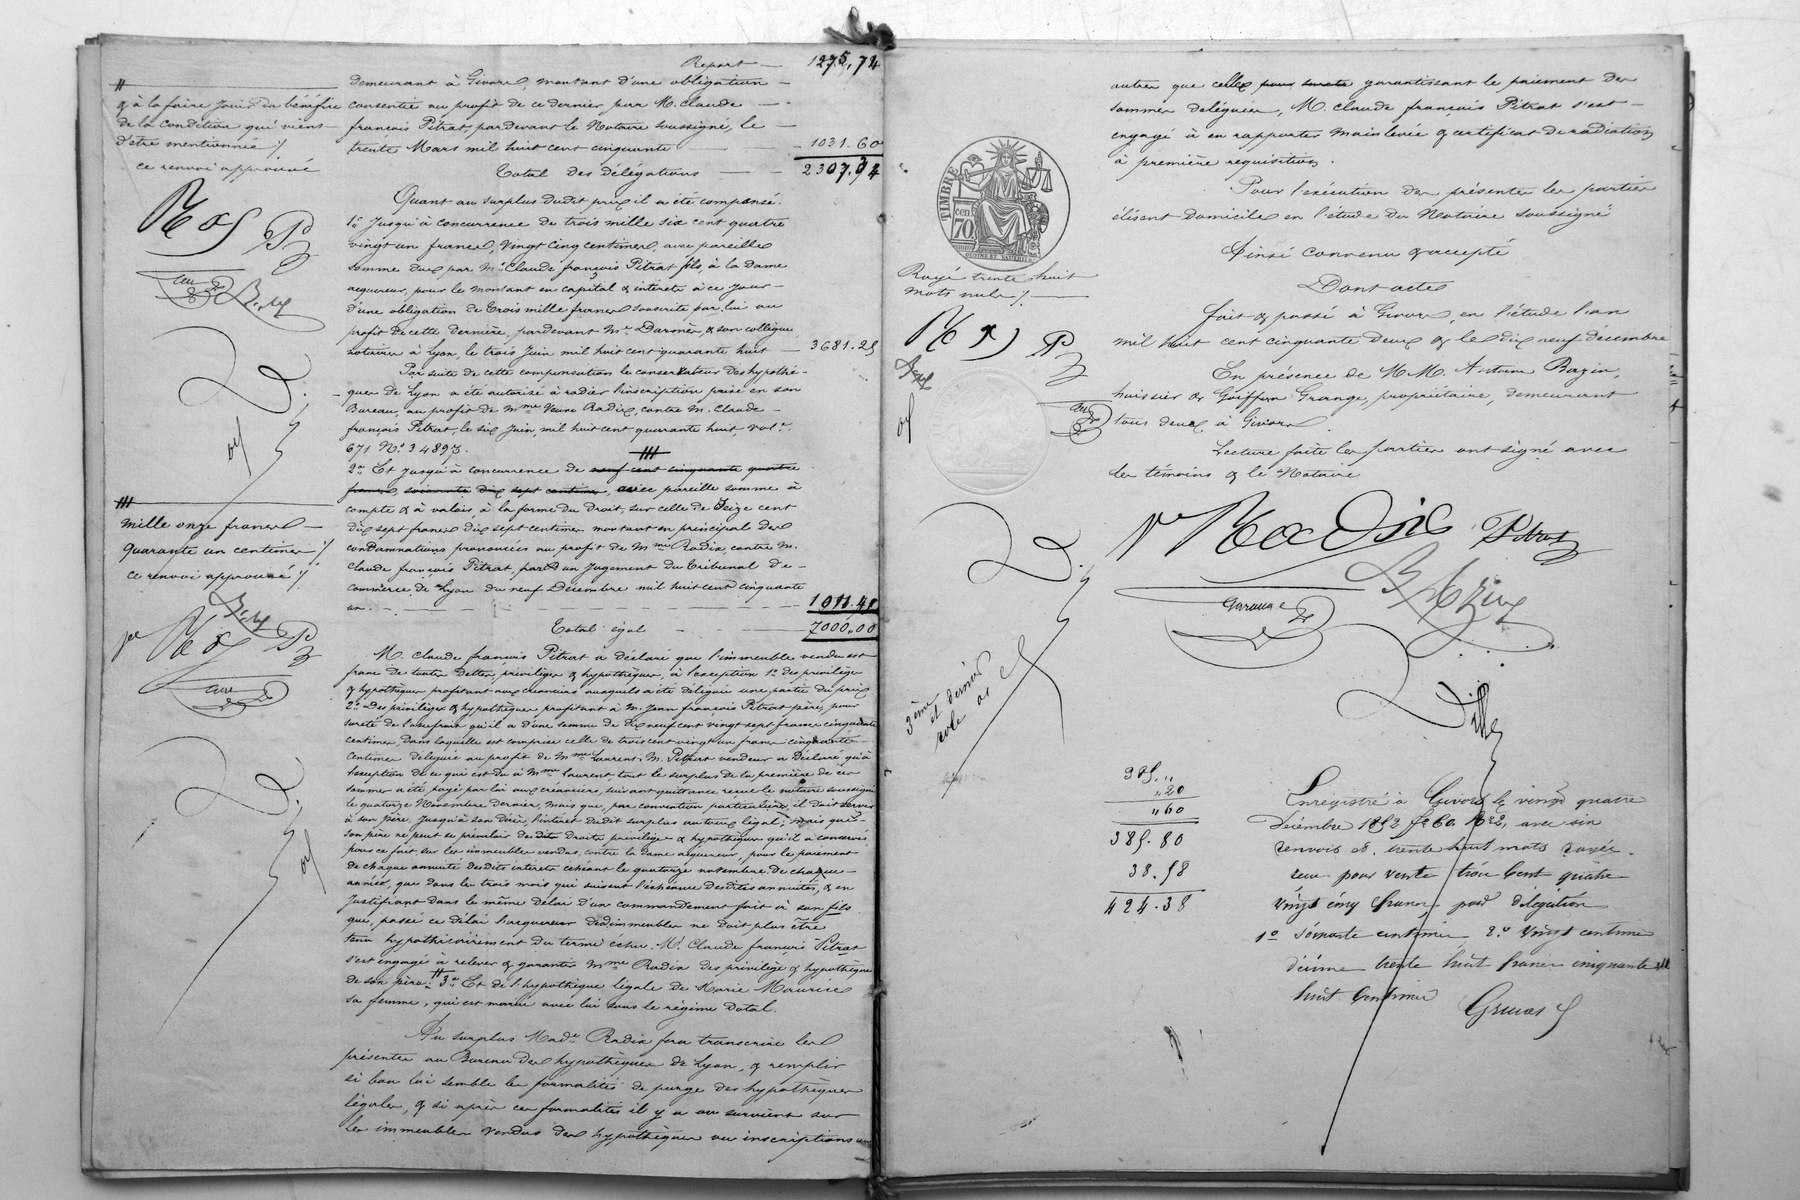 Report — 1275,74
demeurant à Givors, montant d'une obligation —
consentie au profit de ce dernier par M. Claude —
françois Pitrat, pardevant le Notaire soussigné, le —
trente Mars mil huit cent cinquante — 1031.60
Total des délégations — 2307.34
Quant au surplus dudit prix il a été compensé.
1.° Jusqu'à concurrence de trois mille six cent quatre
vingt un francs, Vingt cinq centimes, avec pareille
somme due par M. Claude françois Pitrat fils, à la dame
acquereur, pour le montant en capital & intérêts à ce jour
d'une obligation de Trois mille francs souscrite par lui au
profit de cette dernière, pardevant M.e Darmès & son collègue
notaires à Lyon, le trois Juin mil huit cent quarante huit — 3681.25
Par suite de cette compensation le conservateur des hypothè-
ques de Lyon a été autorisé à radier l'inscription prise en son
Bureau, au profit de Mme Veuve Radix, contre M. Claude —
françois Pitrat, le six Juin, mil huit cent quarante huit, vol.
671 N.° 34897.
2.° Et jusqu'à concurrence de neuf cent cinquante quatre
francs, soixante dix sept centimes, avec pareille somme à
compte & à valoir, à la forme du Droit, sur celle de Seize cent
dix sept francs dix sept centimes montant en principal des
condamnations prononcées au profit de Mme Radix, contre M.
Claude françois Pitrat, par un Jugement du Tribunal de —
commerce de Lyon du neuf Décembre mil huit cent cinquante
un. — 1011.41
Total égal — 7000.00
M. Claude françois Pitrat a déclaré que l'immeuble vendu est
franc de toutes dettes, privilèges & hypothèques, à l'exception 1.° des privilèges
& hypothèques profitant aux créanciers auxquels a été déléguée une partie du prix
2.° Des privilèges & hypothèques profitant à M. Jean françois Pitrat père, pour
sureté de l'usufruit qu'il a d'une somme de dix neuf cent vingt sept francs cinquante
centimes dans laquelle est comprise celle de trois cent vingt un francs cinquante
centimes déléguée au profit de Mme Laurent. M. Pitrat vendeur a Déclaré qu'à
l'exception de ce qui est dû à Mme Laurent, tout le surplus de la première de ces
sommes a été payé par lui aux créanciers, suivant quittance reçue le notaire soussigné
le quatorze Novembre dernier, mais que, par convention particulière, il doit servir
à son père, jusqu'à son décès, l'intérêt dudit surplus au taux légal; mais que
son père ne peut se prévaloir desdits droits privilèges & hypothèques qu'il a conservés
pour ce fait sur les immeubles vendus, contre la dame acquereur, pour le paiement
de chaque annuité desdits intérêts échéant le quatorze novembre de chaque
année, que dans les trois mois qui suivent l'échéance desdites annuités, & en
justifiant dans le même délai d'un commandement fait à son fils
que, passé ce délai l'acquereur desdits immeubles ne doit plus être
tenu hypothécairement du terme échu. M. Claude françois Pitrat
s'est engagé à relever & garantir Mme Radix des privilège & hypothèque
de son père. # 3.° Et de l'hypothèque légale de Marie Maurice
sa femme, qui est mariée avec lui sous le régime Dotal.
Au surplus Made Radix fera transcrire les
présentes au Bureau des hypothèques de Lyon, & remplir
si bon lui semble les formalités de purge des hypothèques
légales, & si après ces formalités il y a ou survient sur
les immeubles vendus des hypothèques ou inscriptions
#
& à la faire jouir du bénéfice
de la condition qui vient
d'être mentionnée ./
ce renvoi approuvé
###
mille onze francs —
quarante un centimes ./
ce renvoi approuvé ./
autres que celles pour sureté garantissant le paiement des
sommes déléguées, M. Claude françois Pitrat s'est —
engagé à en rapporter mainlevée & certificat de radiation
à première requisition.
Pour l'exécution des présentes les parties
élisent domicile en l'étude du Notaire soussigné
Ainsi convenu & accepté
Dont acte
fait & passé à Givors, en l'étude l'an
mil huit cent cinquante deux & le dix neuf décembre
En présence de M.M. Antoine Bazin,
huissier & Goiffon Grange, propriétaire, demeurant
tous deux à Givors.
Lecture faite les parties ont signé avec
les témoins & le Notaire
Ve Radix Pitrat
Bazin
Grange
TIMBRE
70 cen
Rayé trente huit
mots nuls ./.
3ème
et dernier
rôle
385.„
„20
„60
385.80
38.58
424.38
Enregistré à Givors le vingt quatre
Décembre 1852 f° 60. avec six
renvois et trente huit mots rayés.
reçu pour vente trois cent quatre
vingt cinq francs, pour délégation
1° soixante centimes 2° vingt centimes
décime trente huit francs cinquante
huit centimes